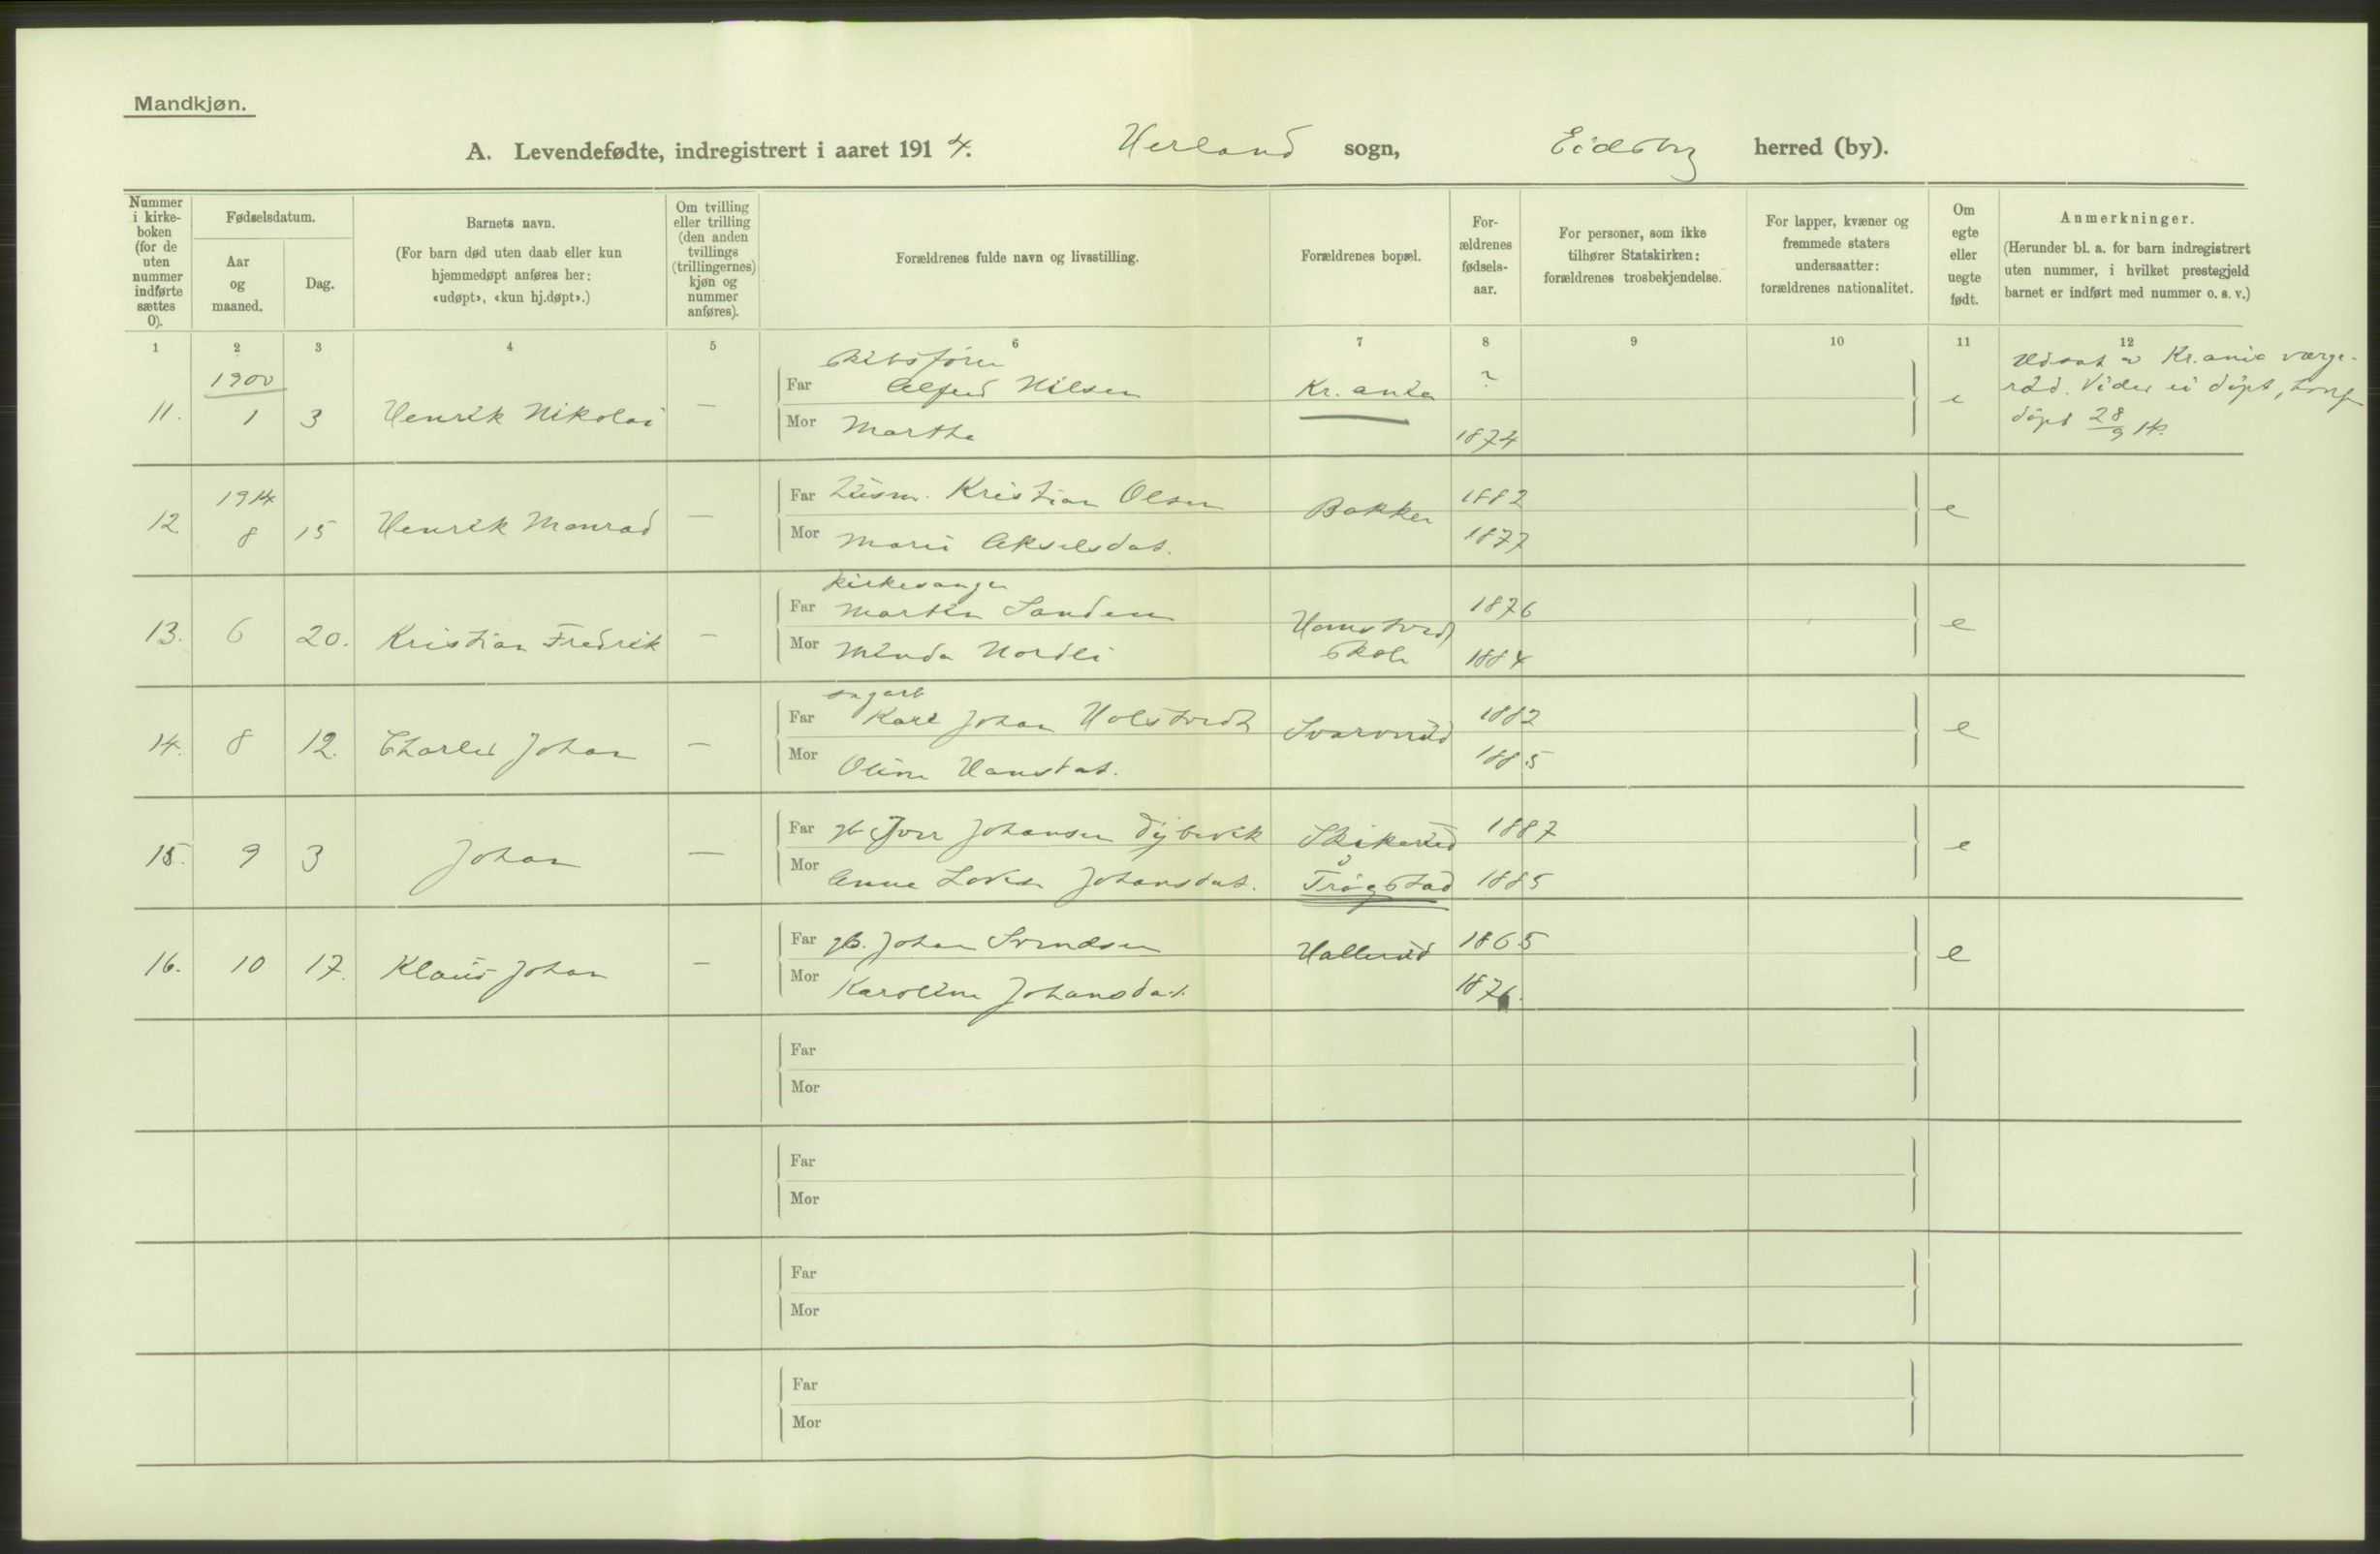 Mandkjøn.
A. Levendefødte, indregistrert i aaret 1914. Herland sogn, Eidsbg herred (by).
Nummer
i kirke-
boken
(for de
uten
nummer
indførte
sættes
0).
Fødselsdatum.
Aar
og
maaned.
Dag.
Barnets navn.
(For barn død uten daab eller kun
hjemmedøpt anføres her:
«udøpt», «kun hj.døpt».)
Om tvilling
eller trilling
(den anden
tvillings
(trillingernes)
kjøn og
nummer
anføres).
Forældrenes fulde navn og livsstilling.
Forældrenes bopæl.
For-
ældrenes
fødsels-
aar.
For personer, som ikke
tilhører Statskirken:
forældrenes trosbekjendelse.
For lapper, kvæner og
fremmede staters
undersaatter:
forældrenes nationalitet.
Om
egte
eller
uegte
født.
Anmerkninger.
(Herunder bl. a. for barn indregistrert
uten nummer, i hvilket prestegjeld
barnet er indført med nummer o. s. v.)
1 2 3 4 5 6 7 8 9 10 11 12
1900
11. 1 3 Henrik Nikolai —
Skibsfører
Far Alfred Nilsen
Mor Marthe
Kr.ania
?
1874
e
Udsat av Kr.ania værge-
råd. Vides ei døpt,
døpt 28/9 14.
1914
12 8 15 Henrik Monrad —
Far husm. Kristian Olsen
Mor Marie Akselsdat.
Bakker
1882
1877
e
13. 6 20. Kristian Fredrik —
kirkesanger
Far Martin Sanden
Mor Minda Nordli
Hamstvedt
skole
1876
1884
e
14. 8 12. Charles Johan —
sagarb
Far Karl Johan Holstvedt
Mor Oline Hansdat.
Svarverud
1882
1885
e
15. 9 3 Johan —
Far gb Iver Johansen Dybevik
Mor Anne Lovise Johansdat.
Skikerud
Trøgstad
1887
1885
e
16. 10 17. Klaus Johan —
Far gb. Johan Svendsen
Mor Karoline Johansdat.
Hallerud
1865
1876.
e
Far
Mor
Far
Mor
Far
Mor
Far
Mor